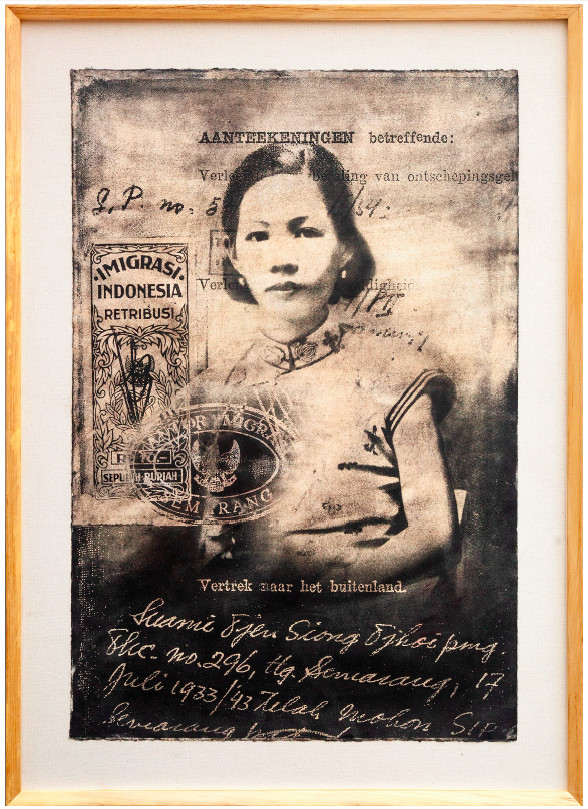 AANTEEKENINGEN betreffende:
van ontschepingsgel
I.P. no: 5
IMIGRASI
INDONESIA
RETRIBUSI
IMIGRA
SEMARANG
Vertrek naar het buitenland.
Suami Tjen Siong Tjhoi pmg.
no. 296, tg. Semarang, 17
Juli 1933/43 Telah mohon SIP
Semarang